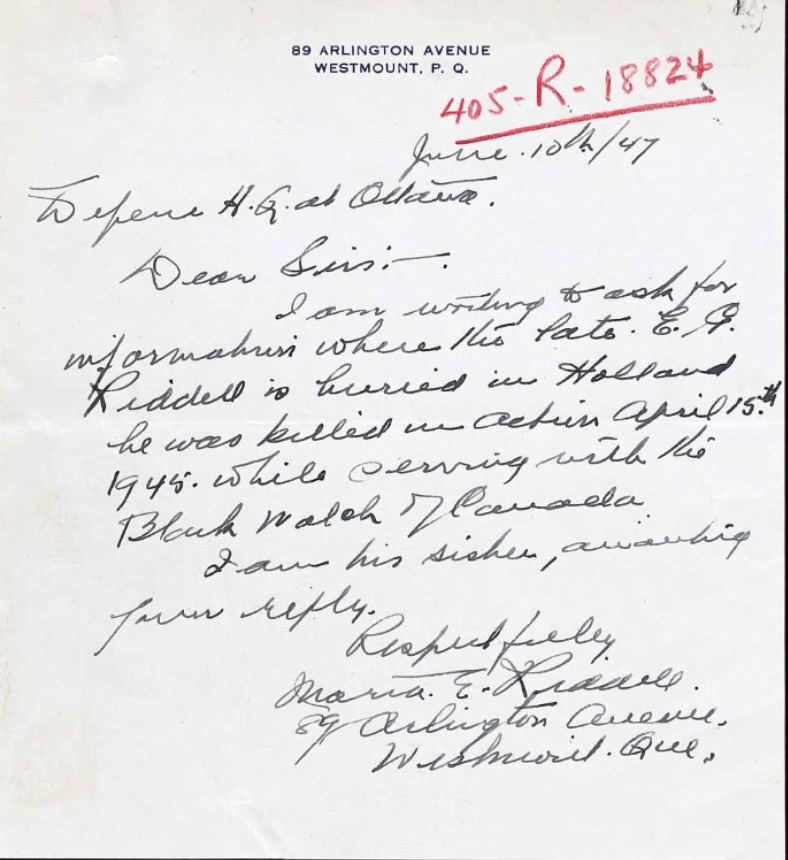 89 ARLINGTON AVENUE
WESTMOUNT, P. Q.
405-R-18824
June. 10th/47
Defence H.Q. at Ottawa.
Dear Sirs:—.
I am writing to ask for
information where the late. E. G.
Riddell is buried in Holland
he was killed in action April 15.th
1945. while serving with the
Black Watch of Canada
I am his sister, awaiting
your reply.
Respectfully
Maria. E. Riddell.
89 Arlington Avenue.
Westmount. Que.